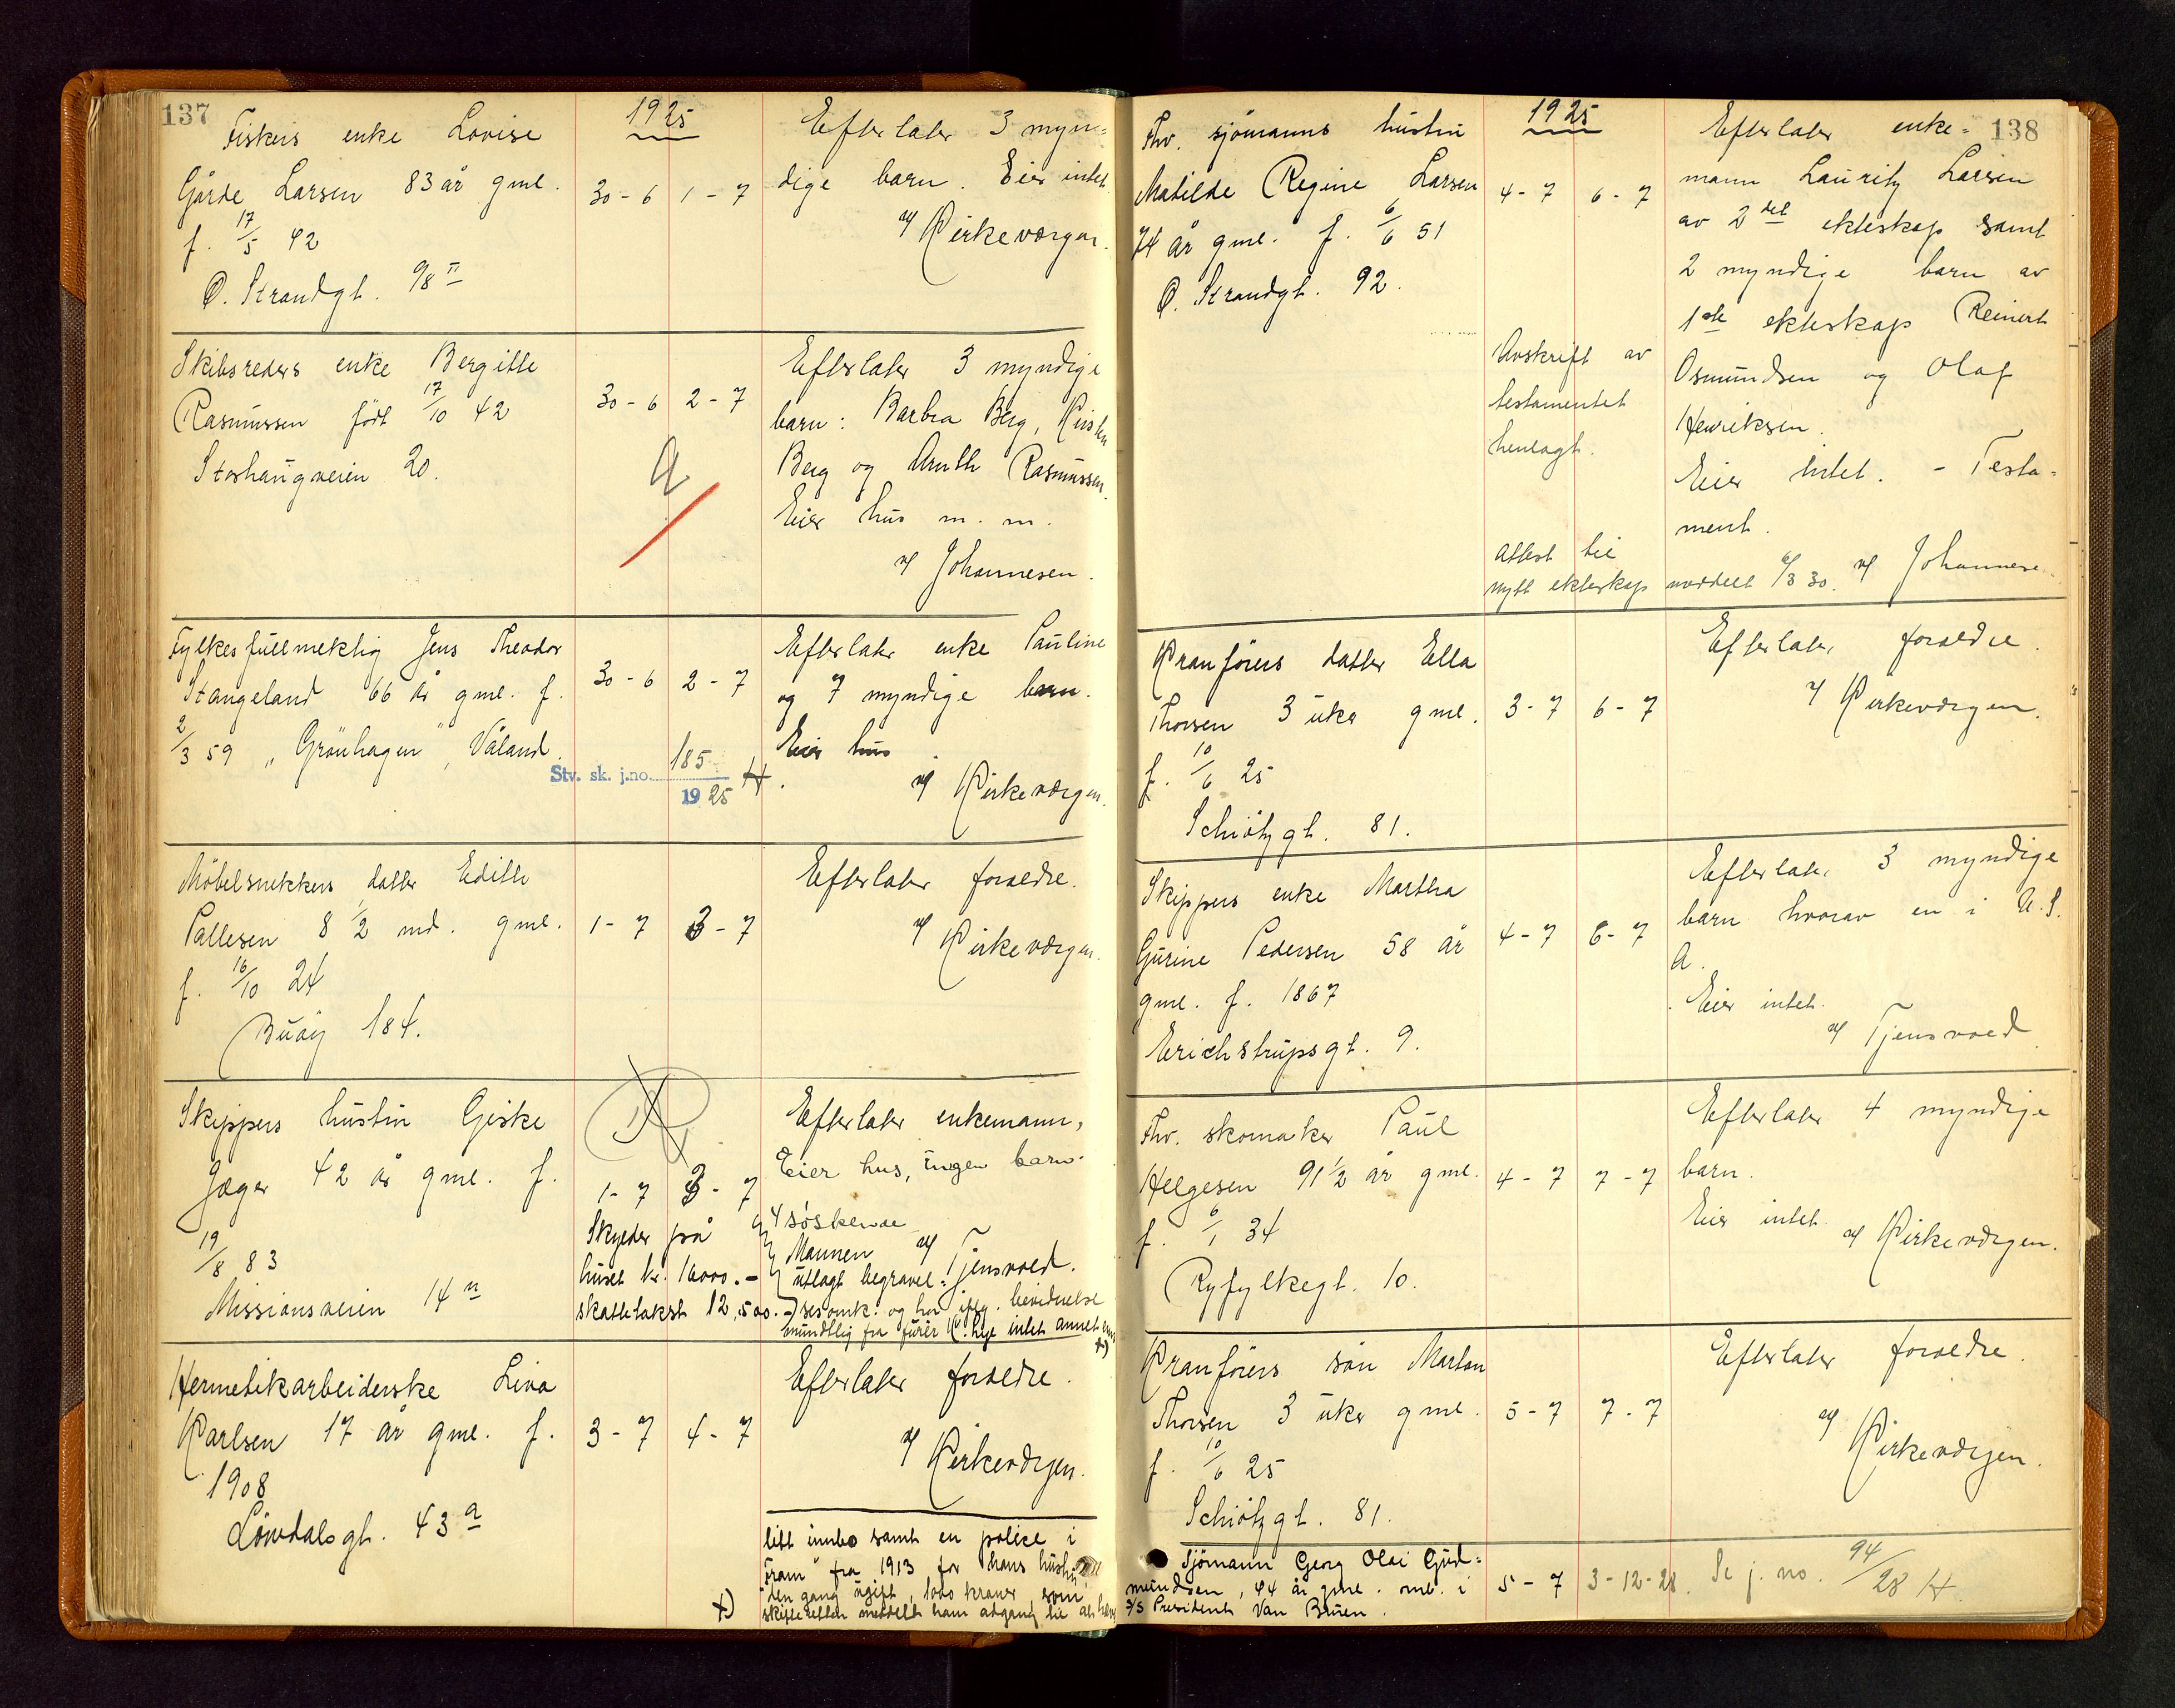 137
1925
Fiskers enke Lovise
Gårde Larsen 83 år gml.
f. 17/5 42
Ø. Strandgt. 98 II
30-6 1-7
Efterlater 3 myn=
dige barn. Eier intet.
af Kirkevergen.
Skibsreders enke Bergitte
Rasmussen født 17/10 42
Storhaugveien 20.
30-6 2-7
a
Efterlater 3 myndige
barn: Barbra Berg, Kirsten
Berg og Anth Rasmussen.
Eier hus m. m.
af Johannesen.
Fylkesfullmektig Jens Theodor
Stangeland 66 år gml. f.
2/3 59 „Grönhagen", Våland.
30-6 2-7
Stv. sk. j.no. 185
1925 H.
Efterlater enke Pauline
og 7 myndige barn.
Eier hus.
af Kirkevergen.
Möbelsnekkers datter Edith
Pallesen 8 1/2 md. gml.
f. 16/10 24
Buöy 184.
1-7 3-7
Efterlater foreldre.
af Kirkevergen.
Skippers hustru Giske
Jæger 42 år gml. f.
19/8 83
Missionsveien 14 n
1-7 3-7
Skylder på
huset kr. 16000.-
skattetakst 12,500.-
Efterlater enkemann,
Eier hus, ingen barn.
4 söskende
Mannen af Tjensvold.
utlagt begravel=
sesomk. og har iflg. bevidnelse
mundtlig fra fürer K. Lye intet annet enn
x)
Hermetikarbeiderske Lina
Karlsen 17 år gml. f.
1908
Lövdalsgt. 43 a
3-7 4-7
Efterlater foreldre.
af Kirkevergen.
litt innbo samt en police i
„Fram" fra 1913 for hans hustru
den gang ugift, 1000 kroner, som
x) skifteretten meddelt ham adgang til at heve
138
1925
Fhv. sjömanns hustru
Matilde Regine Larsen
74 år gml. f. 6/6 51
Ø. Strandgt. 92.
4-7 6-7
Avskrift av
testamentet
henlagt.
Attest til
nytt ekteskap meddelt 6/3 30.
Efterlater enke=
mann Lauritz Larsen
av 2det ekteskap samt
2 myndige barn av
1ste ekteskap Reinert
Osmundsen og Olaf
Henriksen.
Eier intet. - Testa=
ment.
af Johannese
Kranförers datter Ella
Thorsen 3 uker gml.
f. 10/6 25
Schiötzgt. 81.
3-7 6-7
Efterlater foreldre.
af Kirkevergen.
Skippers enke Martha
Gurine Pedersen 58 år
gml. f. 1867
Erichstrupsgt. 9.
4-7 6-7
Efterlater 3 myndige
barn hvorav en i U.S.
A.
Eier intet.
af Tjensvold.
Fhv. skomaker Paul
Helgesen 91 1/2 år gml.
f. 6/1 34
Ryfylkegt. 10.
4-7 7-7
Efterlater 4 myndige
barn.
Eier intet.
af Kirkevergen.
Kranförers sön Marton
Thorsen 3 uker gml.
f. 10/6 25
Schiötzgt. 81.
5-7 7-7
Efterlater foreldre.
af Kirkevergen.
Sjömann Georg Olai Gud=
mundsen, 44 år gml. omb. i
S/S President Van Buren.
5-7 3-12-28. Se j. no. 94/28 H.